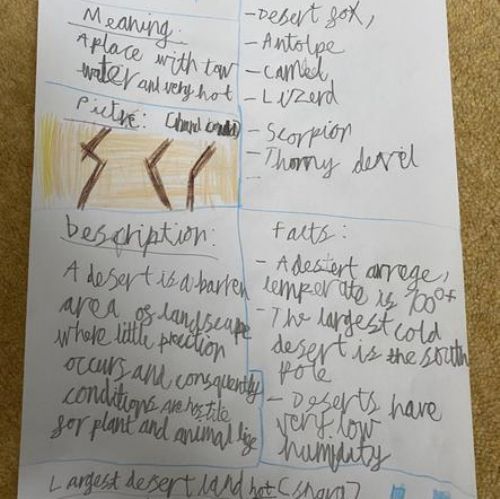 Meaning:
A place with low
water and very hot
Pictre:
- Desert fox,
- Antolpe
- Camel
- Lizerd
- Scorpion
- Thorny devil
-
Description:
A desert is a barren
area of landscape
where little
occurs and consquently
conditions are hostile
for plant and animal life
Facts:
- A desert
temperate is 100°f
- The largest cold
desert is the south
pole
- Deserts have
very low
humidity
Largest desert land hot (shara)